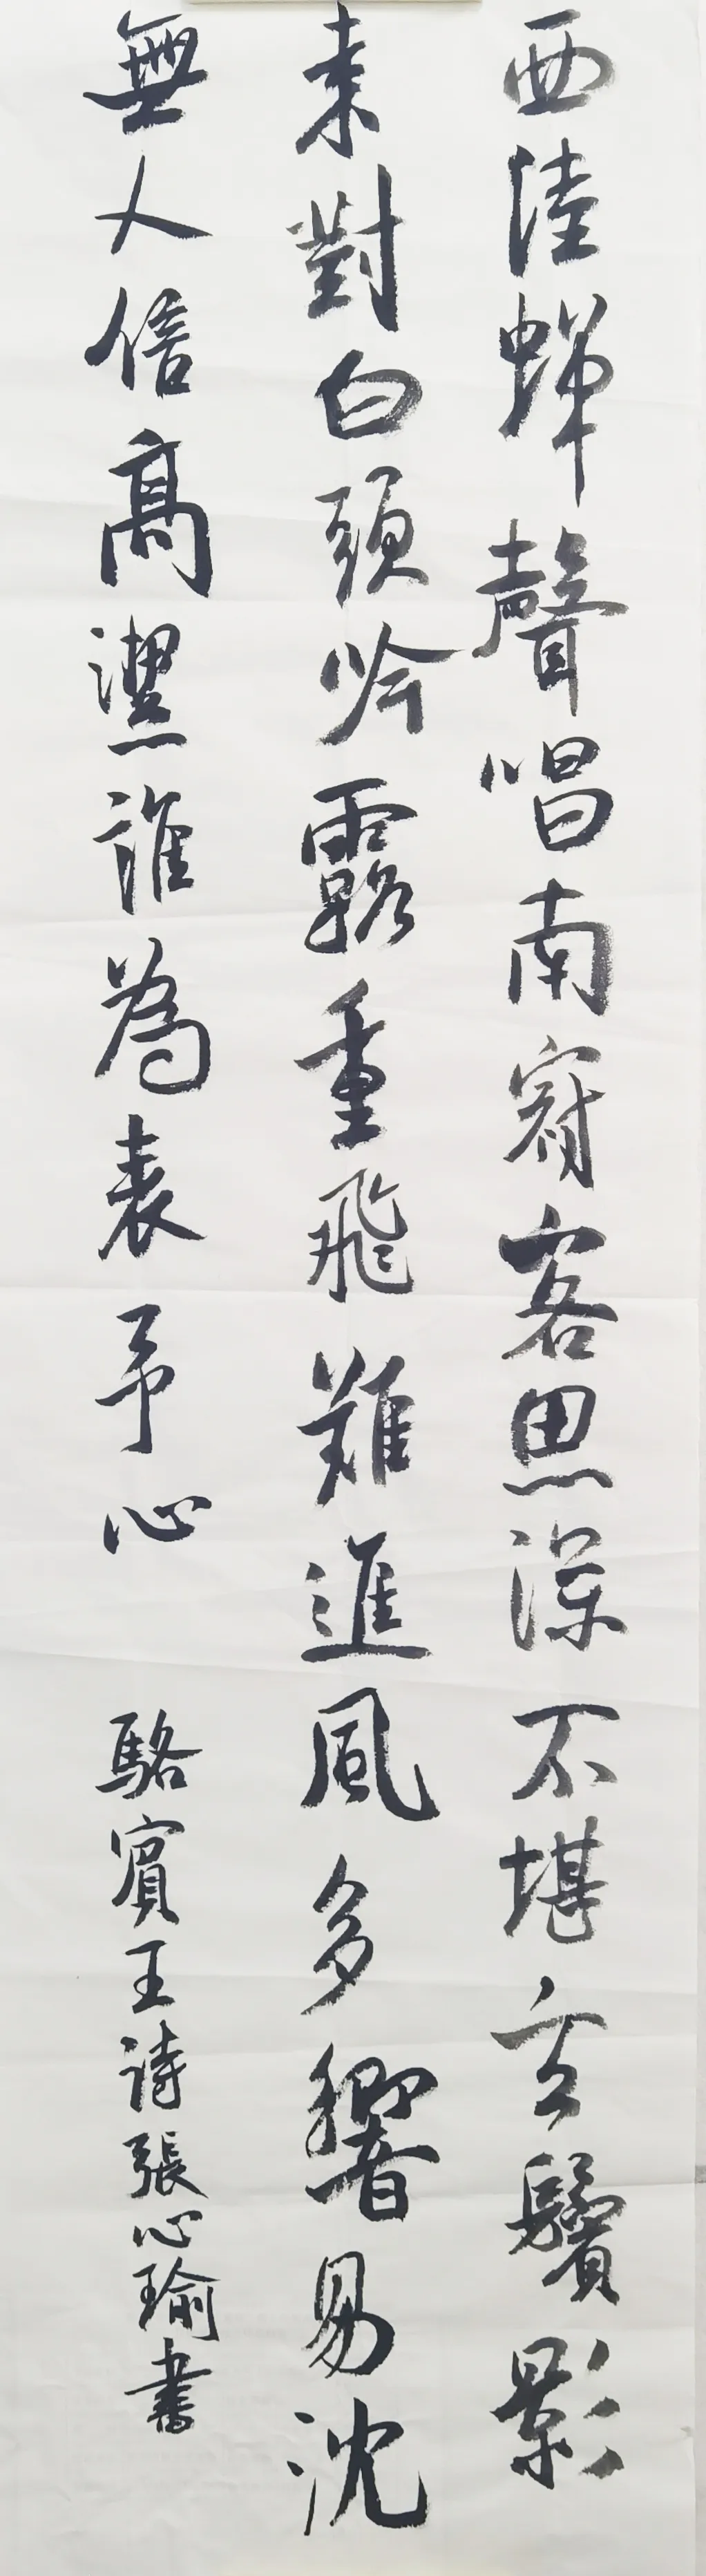 西陸蟬聲唱南冠客思深不堪玄鬢影
来對白頭吟露重飛難進風多響易沈
無人信高潔誰為表予心
駱賓王詩張心瑜書